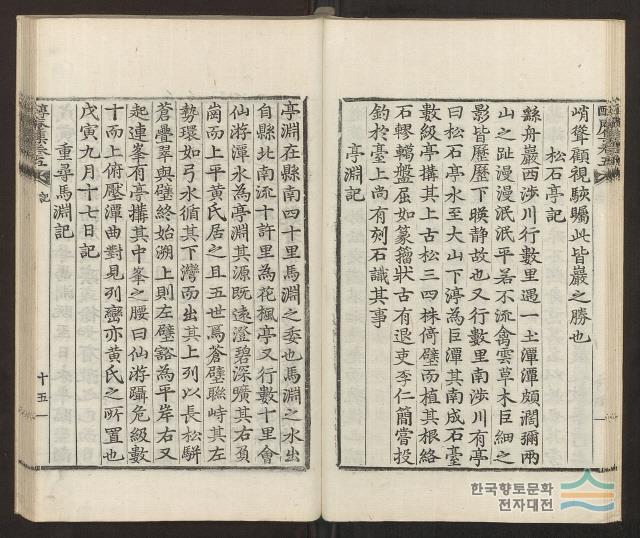 峭聳顧視駭矚此皆巖之勝也
松石亭記
繇舟巖西涉川行數里遇一土潭潭頗濶彌兩
山之趾漫漫泯泯平若不流禽雲草木巨細之
影皆歷歷下暎静故也又行數里南涉川有亭
曰松石亭水至大山下渟為巨潭其南成石臺
數級亭搆其上古松三四株倚壁而植其根絡
石轇轕盤屈如篆籒狀古有退吏李仁簡嘗投
釣於臺上尚有刻石識其事
亭淵記
亭淵在縣南四十里馬淵之委也馬淵之水出
自縣北南流十許里為花楓亭又行數十里會
仙游潭水為亭淵其源既遠澄碧深曠其右負
崗而上平黃氏居之且五世焉蒼壁聯峙其左
勢環如弓水循其下灣而出其上列以長松騈
蒼疊翠與壁終始溯上則左壁谽為平岸右又
起連峯有亭搆其中峯之腰曰仙游躡危級數
十而上俯壓潭曲對見列巒亦黃氏之所置也
戊寅九月十七日記
重尋馬淵記
記
十五
한국향토문화
전자대전